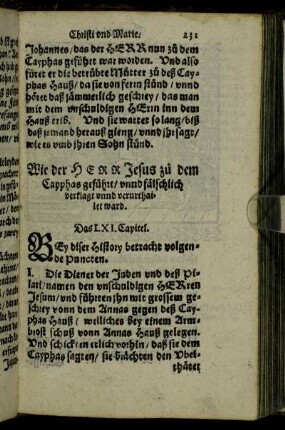 Christi vnd Marie. 231
Johannes/das der HERR nun zů dem
Cayphas gefůhrt war worden. Vnd also
fůret er die betrůbte Můtter zů deß Cay-
phas Hauß/da sie von fern stůnd/vnnd
höret daß jämmerlich geschrey/das man
mit dem vnschuldigen HErrn inn dem
Hauß trib. Vnd sie wartet so lang/biß
daß jemand herauß gieng/vnnd ihr sagt/
wie es vmb ihren Sohn stůnd.
Wie der HERR Jesus zů dem
Cayphas gefůhrt/vnnd fälschlich
verklagt vnnd verurthai-
let ward.
Das LXI. Capitel.
BEy diser History betracht volgen-
de Puncten.
I. Die Diener der Juden vnd deß Pi-
lati/namen den vnschuldigen HERren
Jesum/vnd fůhrten ihn mit grossem ge-
schrey vonn dem Annas gegen deß Cay-
phas Hauß/welliches bey einem Arm-
brost schuß vonn Annas Hauß gelegen.
Vnd schickten etlich vorhin/daß sie dem
Cayphas sagten/sie brächten den Vbel-
thäter